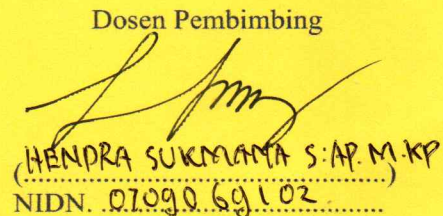 Dosen Pembimbing
(HENDRA SUKMANA S.AP. M.KP)
NIDN. 0709069102